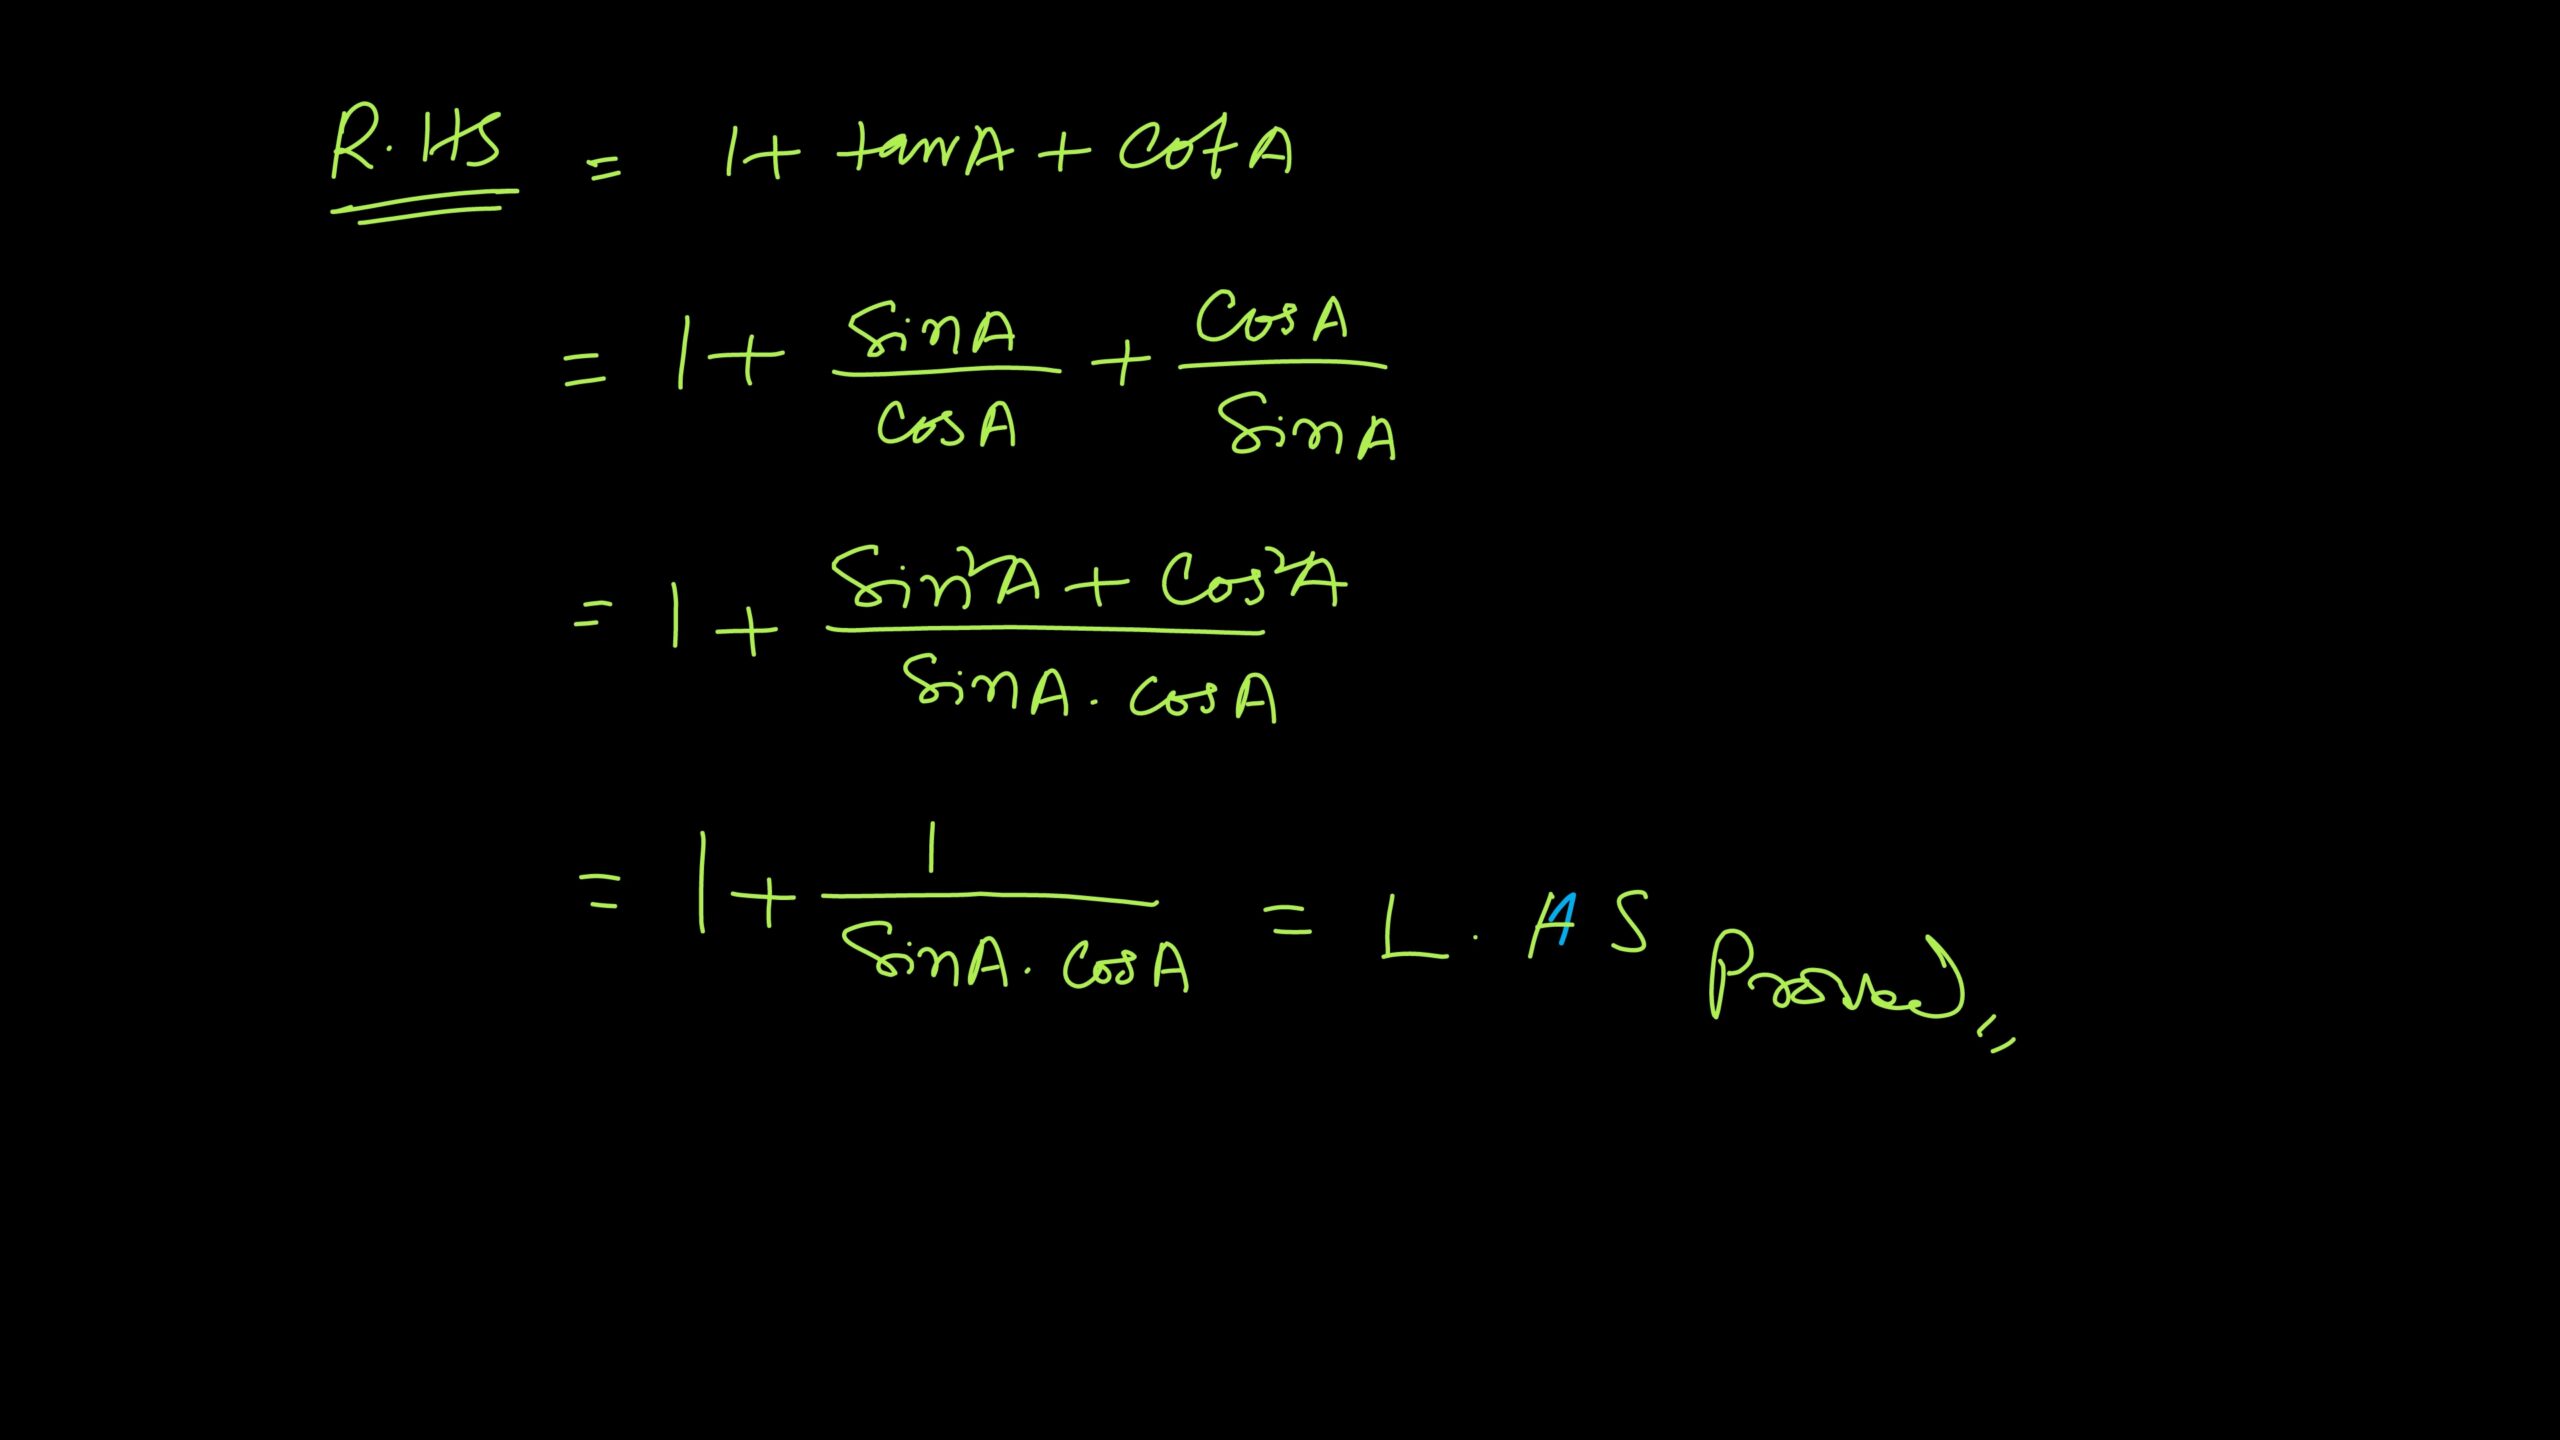 R.HS = 1 + tanA + cotA
= 1 + SinA/CosA + CosA/SinA
= 1 + (Sin²A + Cos²A)/(SinA . CosA)
= 1 + 1/(SinA . CosA) = L.HS Proved,,